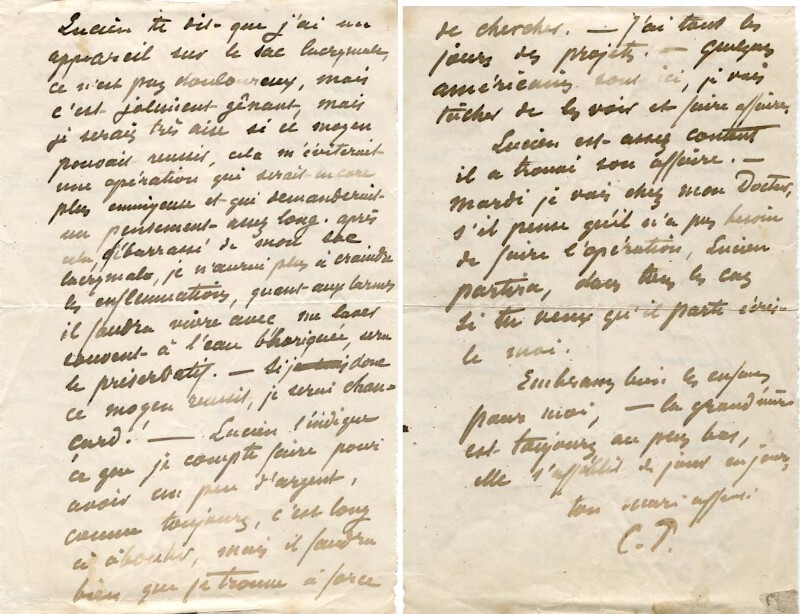 Lucien te dis que j'ai un
appareil sur le sac lacrymale,
ce n'est pas douloureux, mais
c'est joliment gênant, mais
je serais très aise si ce moyen
pouvait reussir, cela m'éviterait
une opération qui serait encore
plus ennuyeuse et qui demanderait
un pensement assez long. après
cela, débarrassé de mon sac
lacrymale, je n'aurai plus à craindre
les enflammations, quant aux larmes
il faudra vivre avec, me laver
souvent à l'eau bhoriquée, sera
le préservatif. — Si donc
ce moyen reussit, je serai chan-
card! — Lucien t'indique
ce que je compte faire pour
avoir un peu d'argent,
comme toujours, c'est long
à aboutir, mais il faudra
bien que je trouve à force
de chercher. — J'ai tous les
jours des projets. — quelques
américains sont ici, je vais
tâcher de les voir et faire affaire.
Lucien est assez content
il a trouvai son affaire. —
mardi je vais chez mon Docteur,
s'il pense qu'il n'a pas besoin
de faire l'opération, Lucien
partira, dans tous les cas
si tu veux qu'il parte écris-
le moi.
Embrasse bien les enfants
pour moi, — la grand'mère
est toujours au plus bas,
elle s'affaiblit de jour en jour,
ton mari affené
C. P.